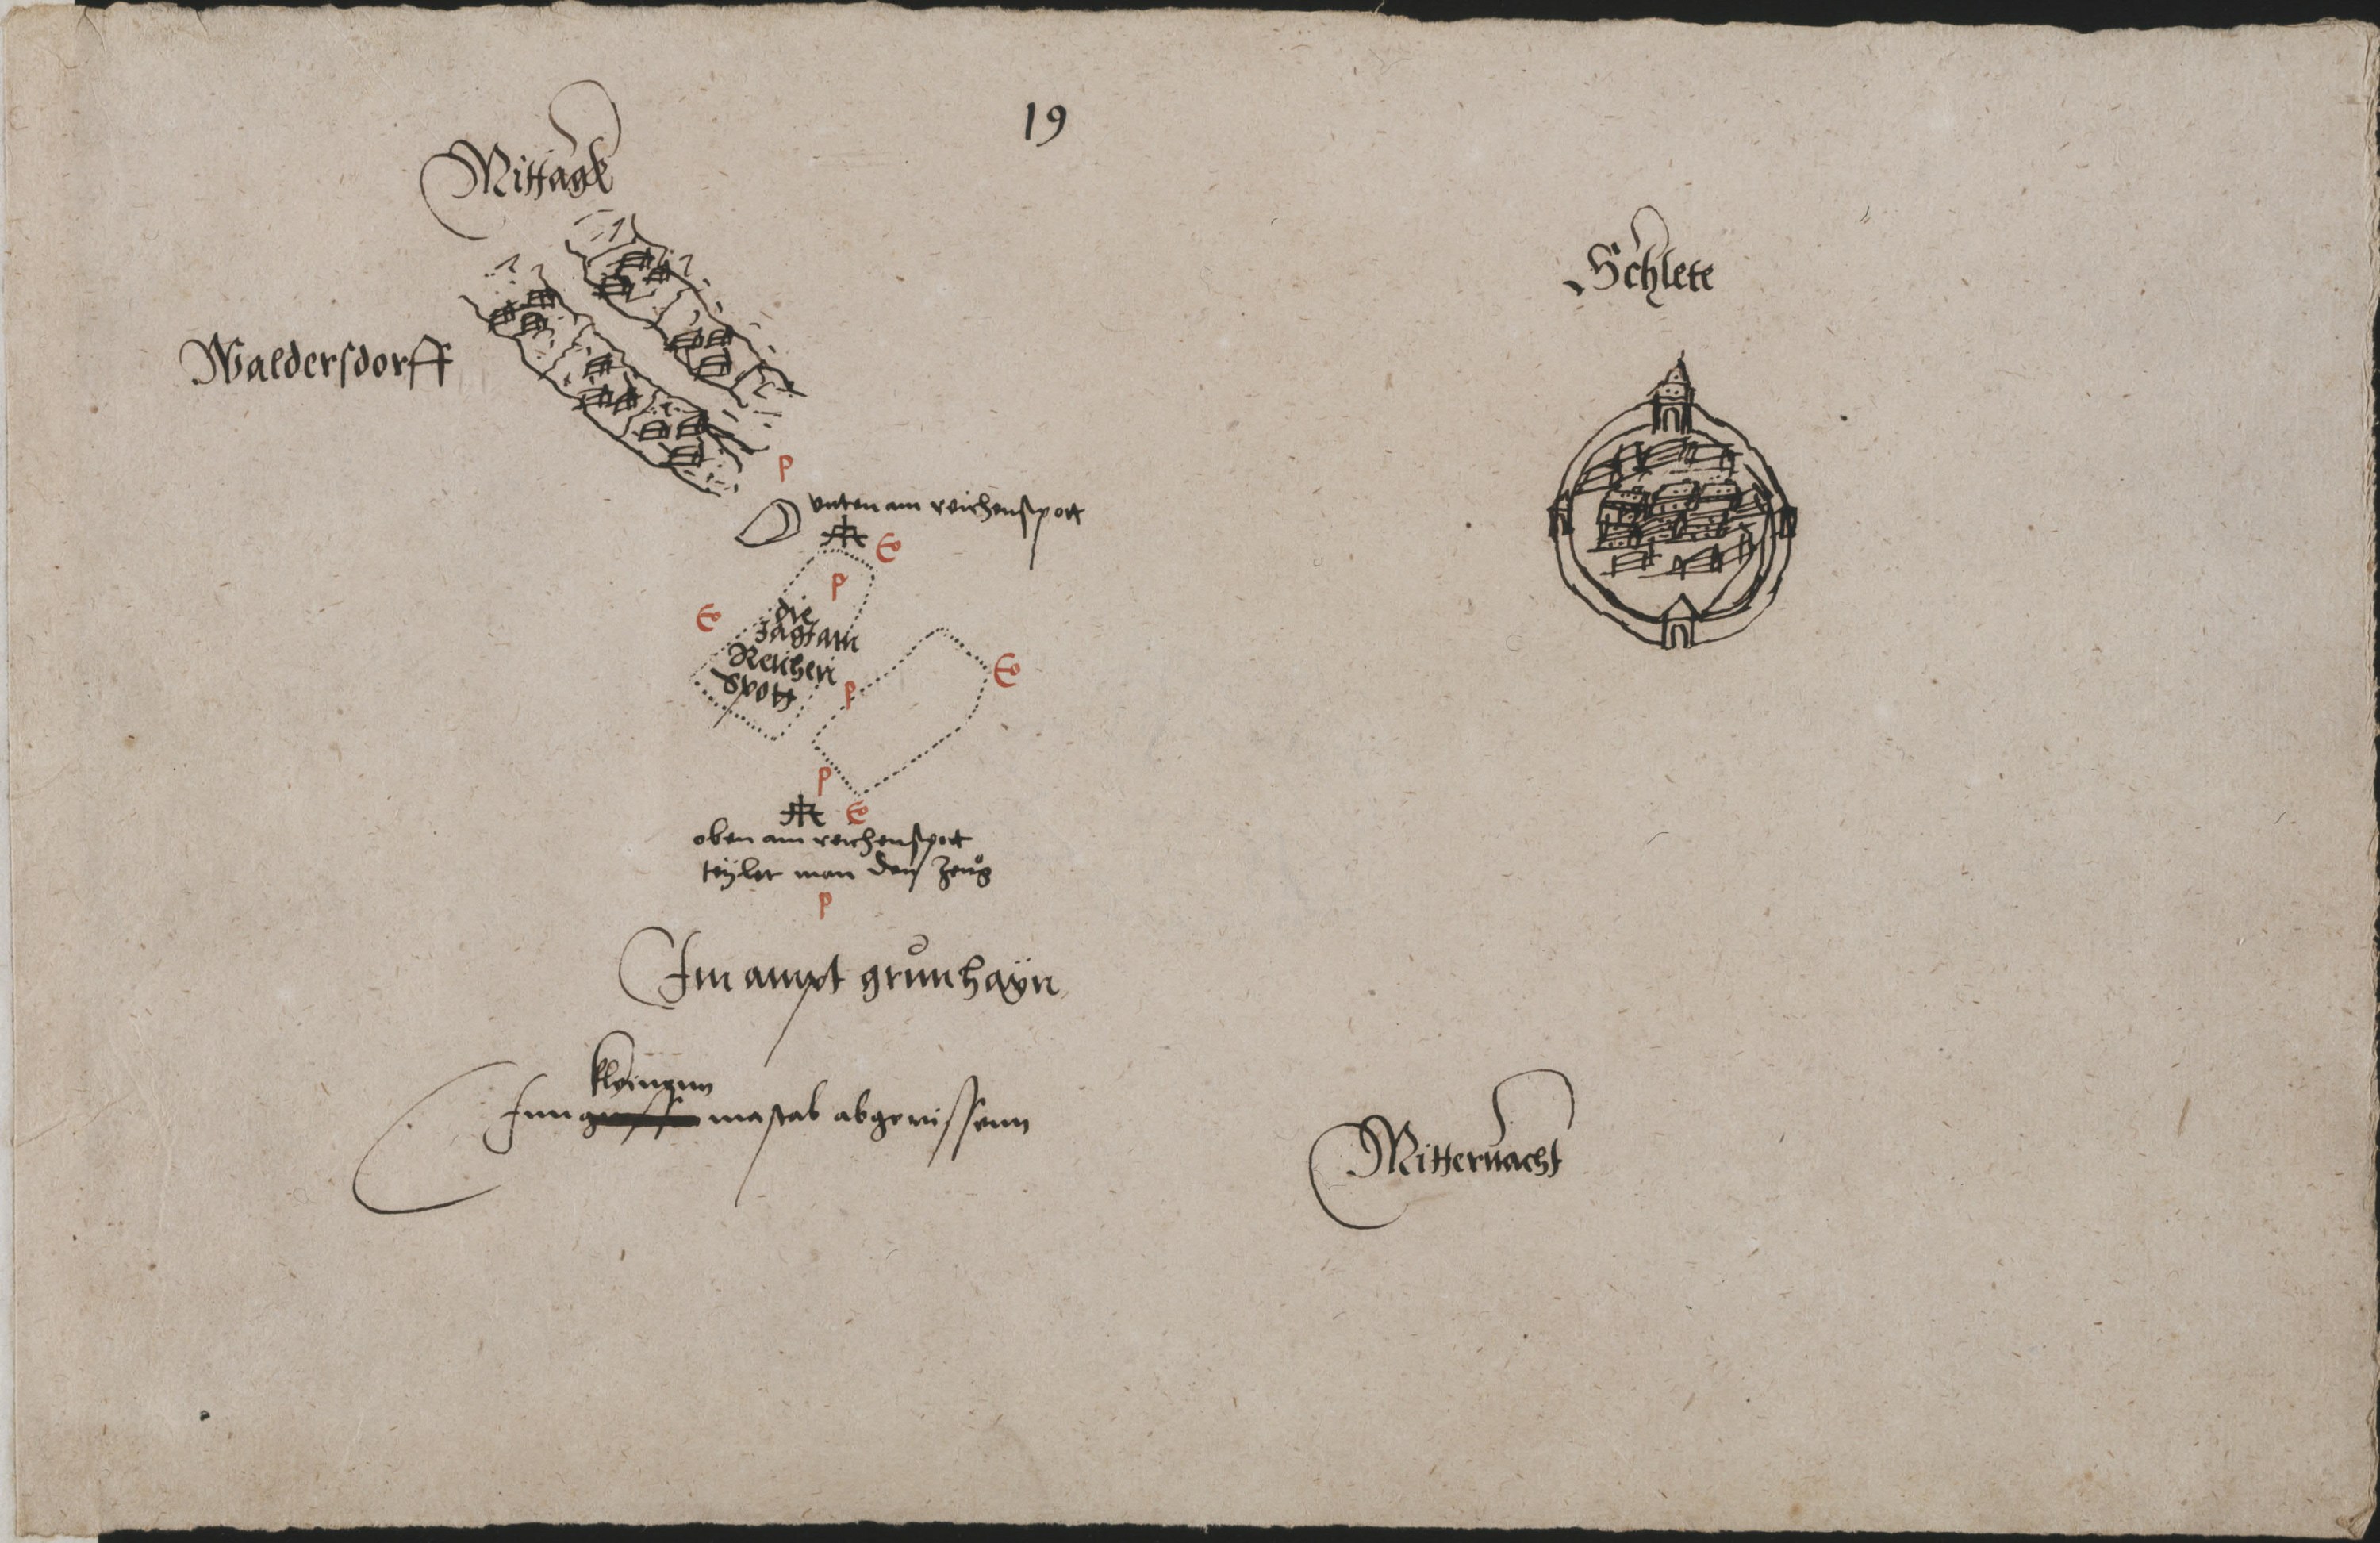 19
Mittagk
Schlete
Waldersdorff
P
vnten am reichenspott
P
die
Jagt am
Reichen
spott
P
P
oben am reichenspott
teylet man den Zeug
P
Im ampt grünhayn
kleinen
Inn mastab abgerissenn
Mitternacht